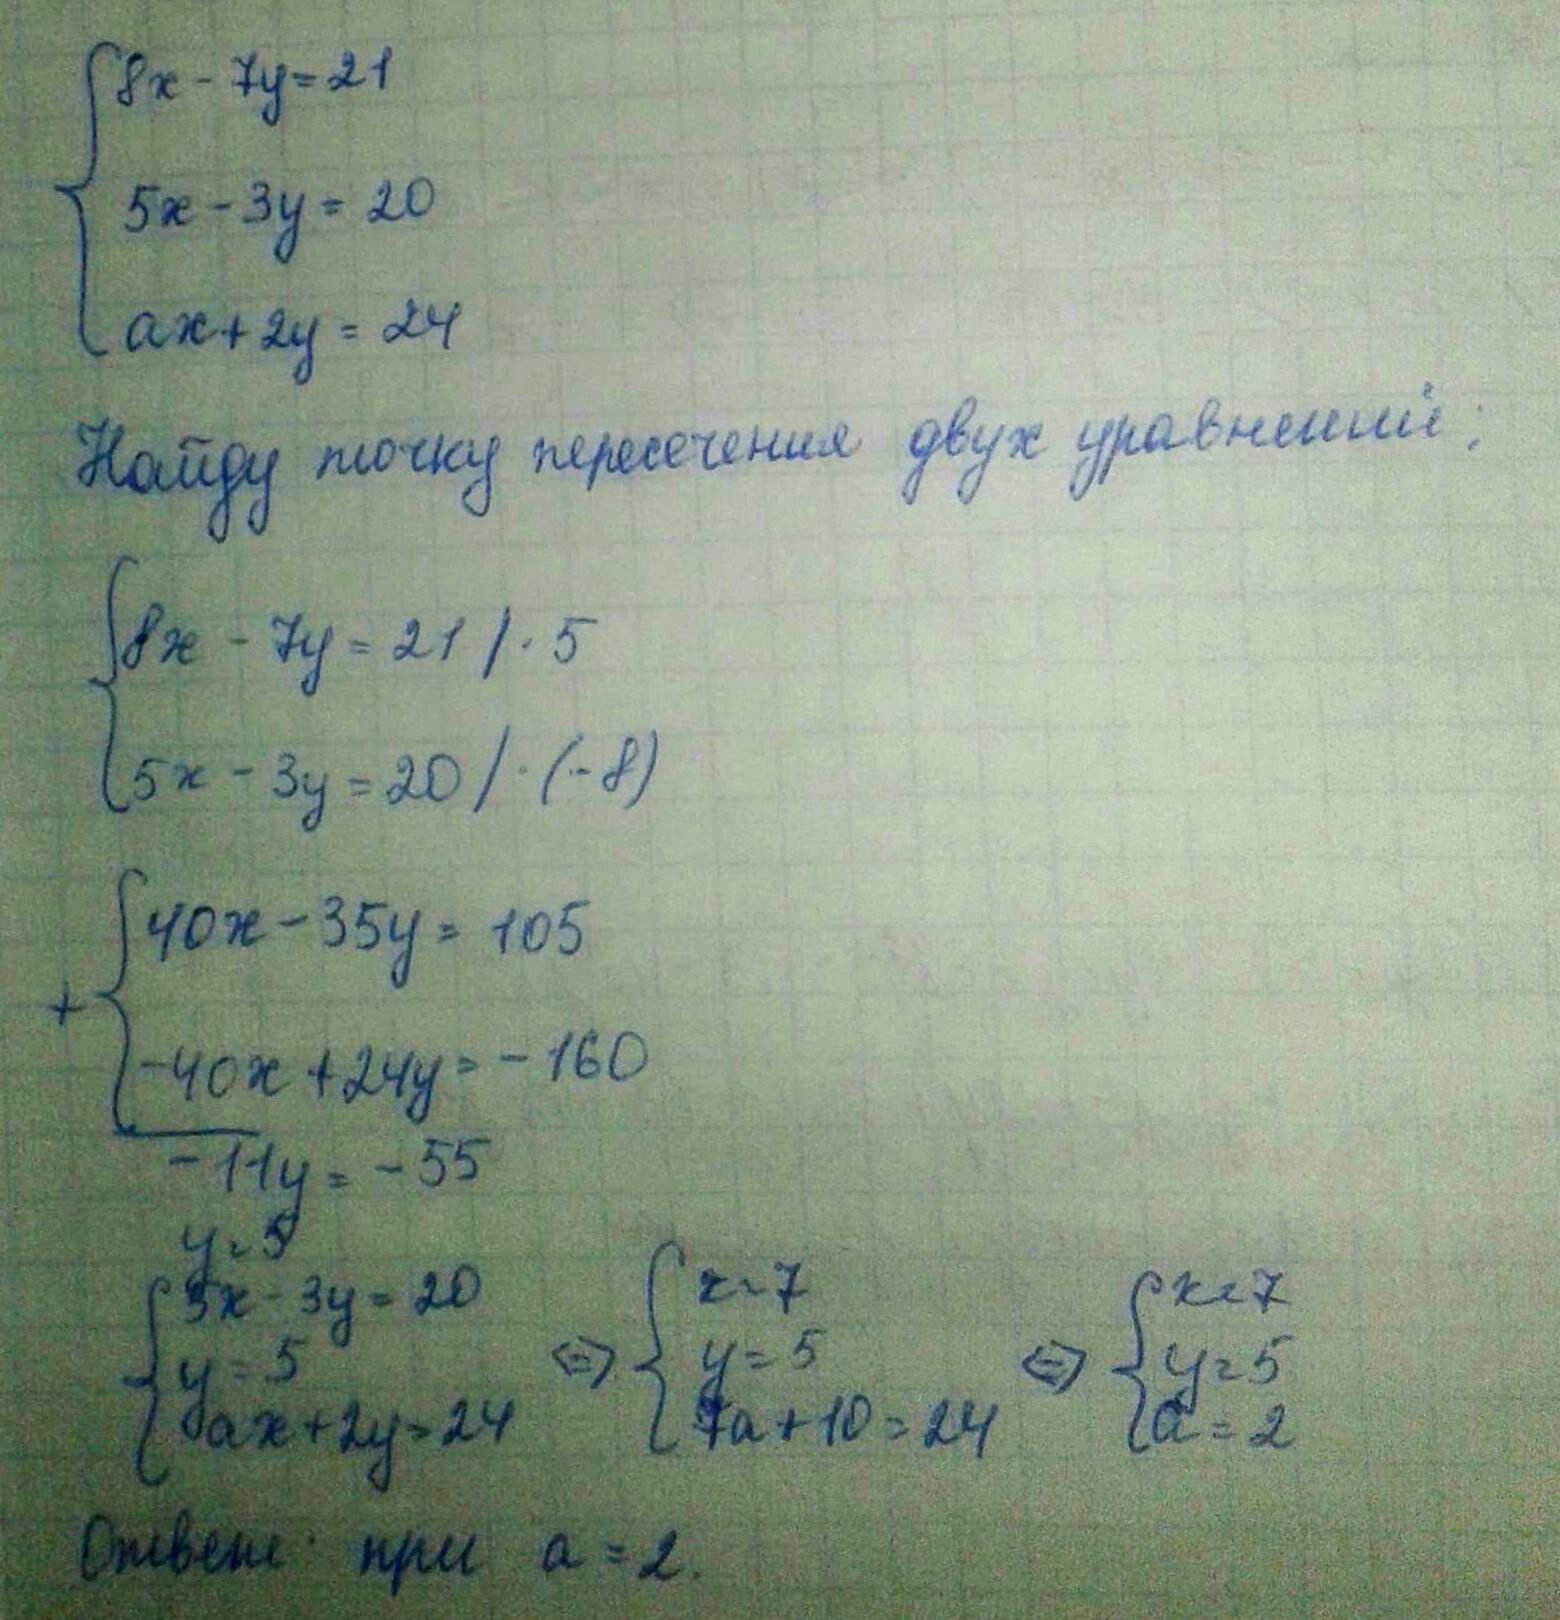 8x - 7y = 21
5x - 3y = 20
ax + 2y = 24
Найду точку пересечения двух уравнений:
8x - 7y = 21 / · 5
5x - 3y = 20 / · (-8)
40x - 35y = 105
+
-40x + 24y = -160
-11y = -55
y = 5
5x - 3y = 20
y = 5
ax + 2y = 24
⇔
x = 7
y = 5
7a + 10 = 24
⇔
x = 7
y = 5
a = 2
Ответ: при a = 2.